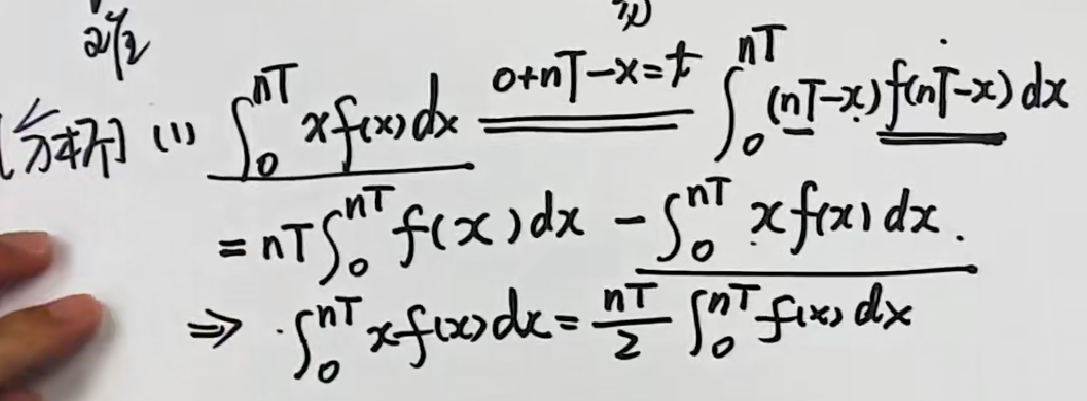 [分析] (1) ∫₀ⁿᵀ x f(x) dx ==0+nT−x=t== ∫₀ⁿᵀ (nT−x) f(nT−x) dx
= nT ∫₀ⁿᵀ f(x) dx − ∫₀ⁿᵀ x f(x) dx.
⇒ ∫₀ⁿᵀ x f(x) dx = nT/2 ∫₀ⁿᵀ f(x) dx